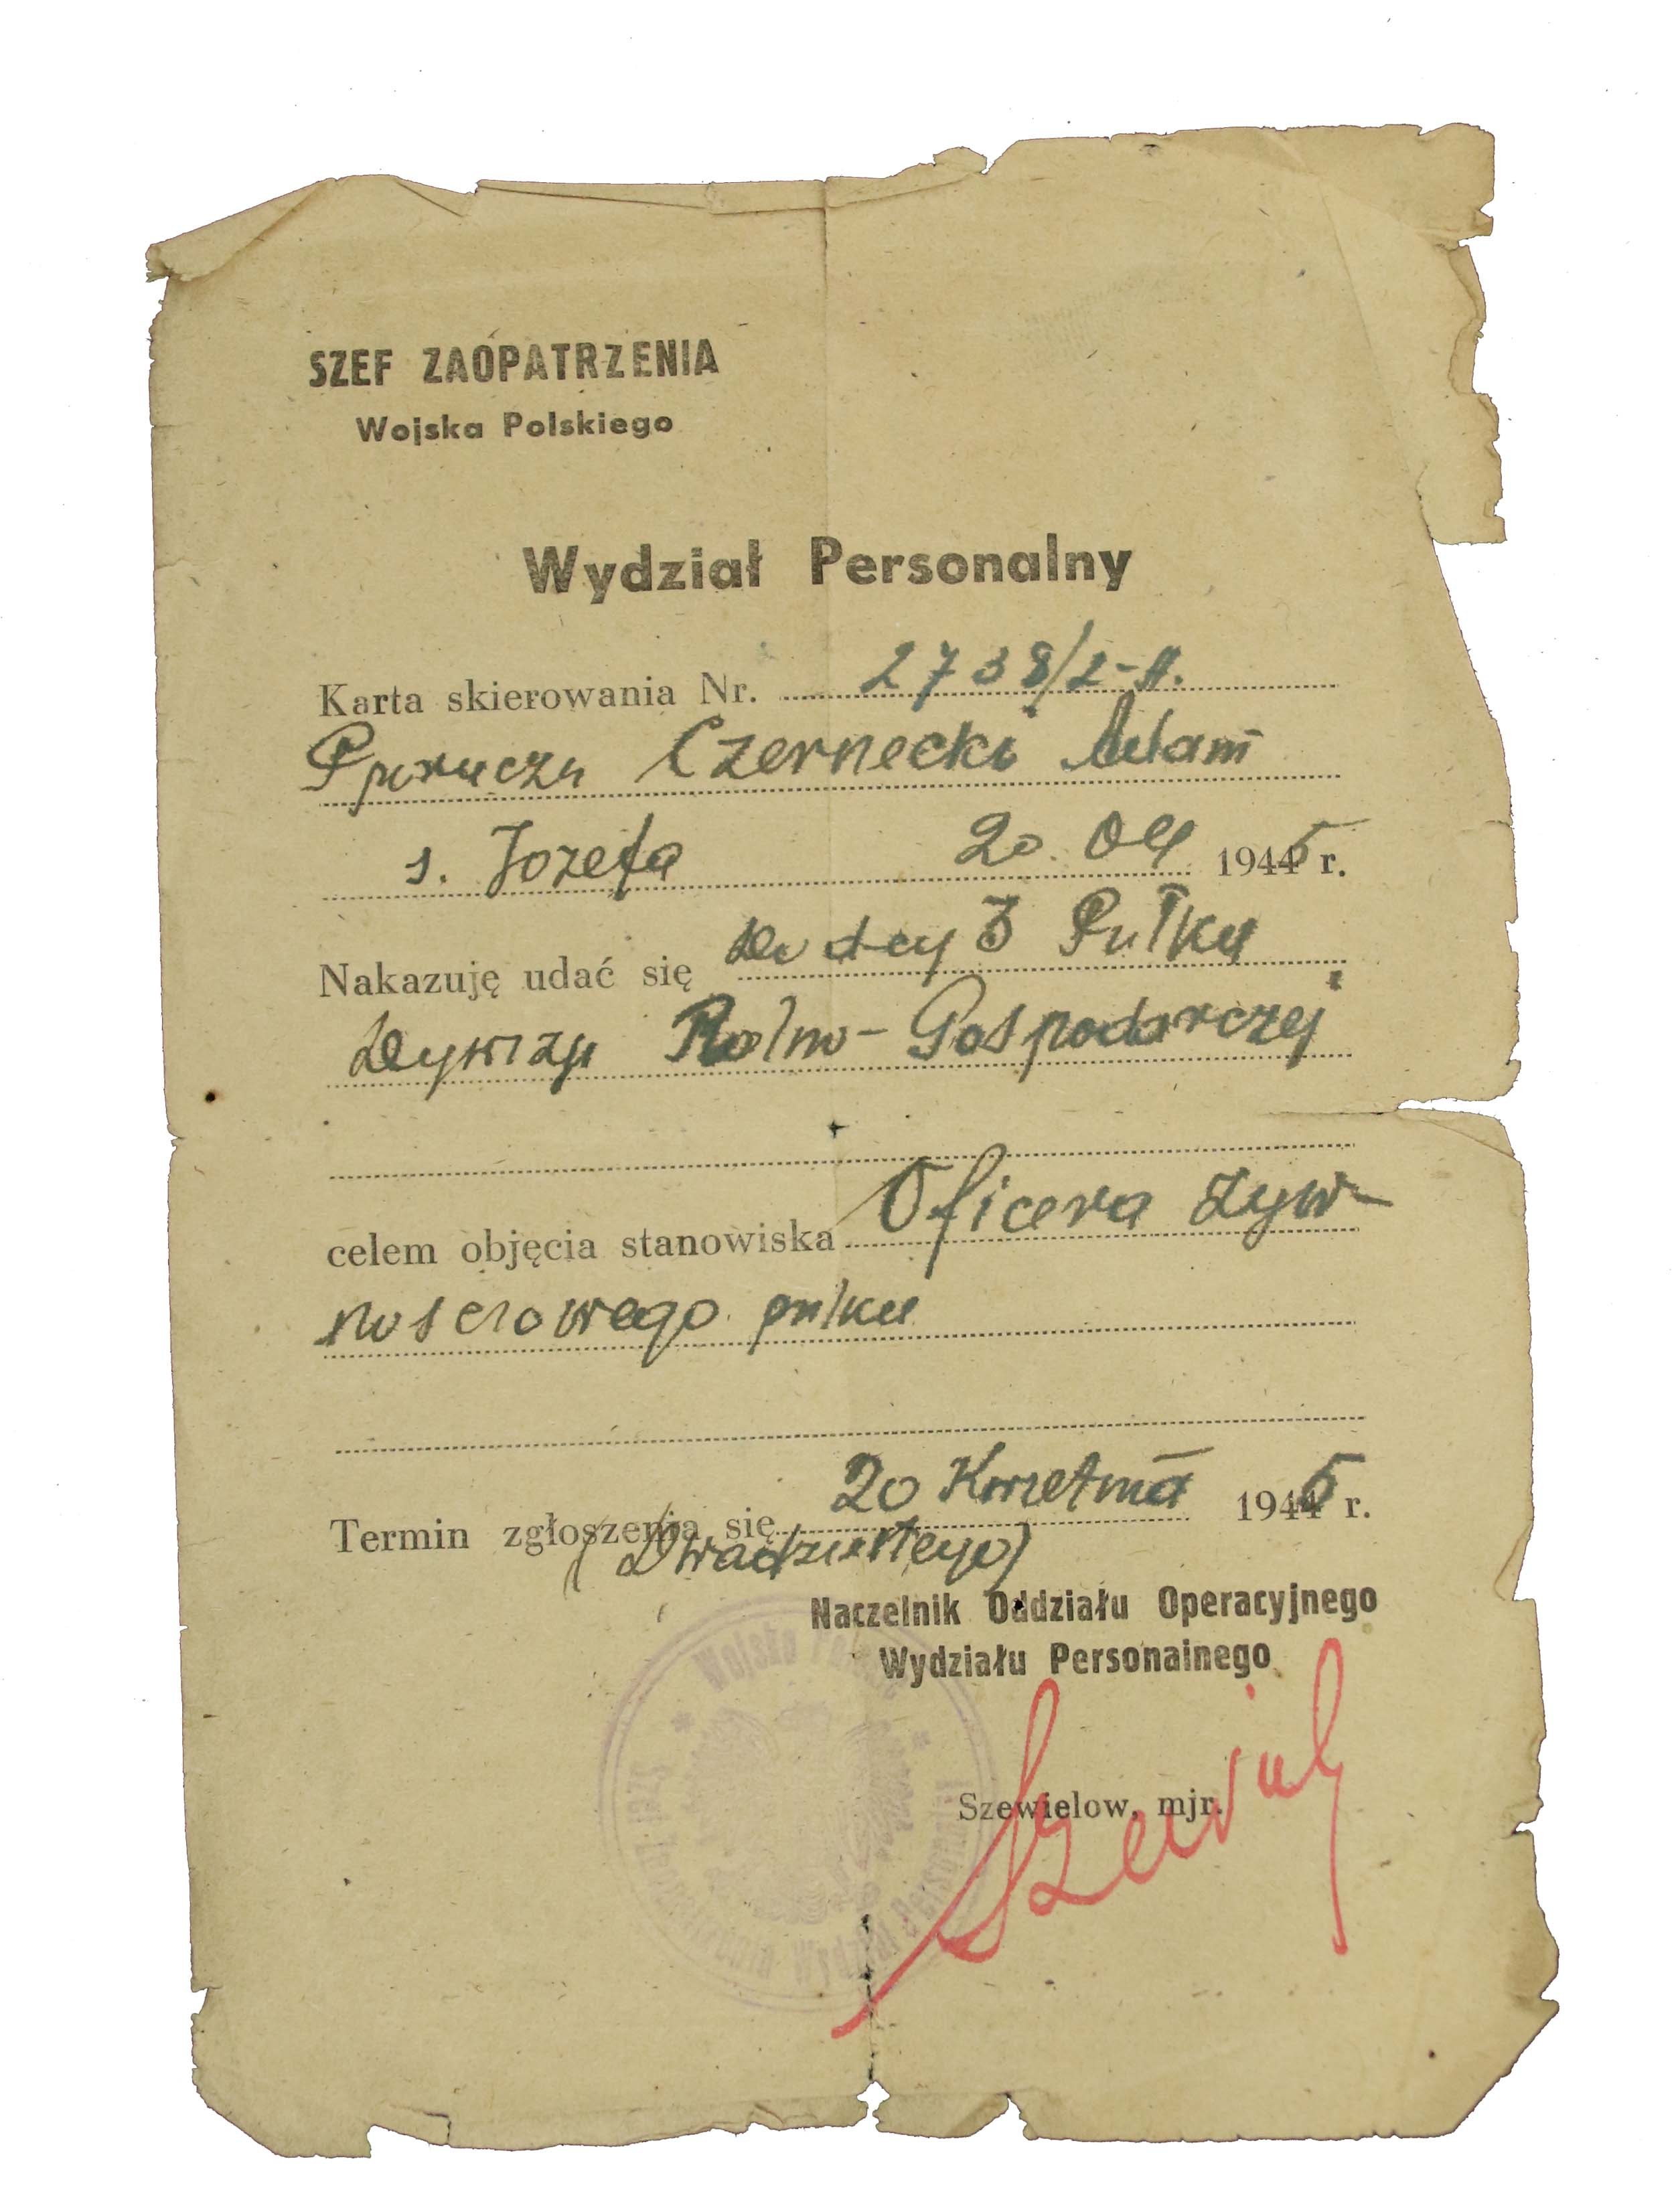 SZEF ZAOPATRZENIA
Wojska Polskiego
Wydział Personalny
Karta skierowania Nr. 2738/2-A.
Pporucza Czernecki Adam
s. Jozefa 20. 04 1945 r.
Nakazuję udać się do dcy 3 Pułku
Dywizji Rolno-Gospodarczej
celem objęcia stanowiska Oficera żyw-
nosciowego pułku
Termin zgłoszenia się 20 Kwietnia 1945 r.
(Dwadziestego)
Naczelnik Oddziału Operacyjnego
Wydziału Personalnego
Szewielow, mjr.
Wojsko Polskie
Szef Zaopatrzenia Wydział Personalny